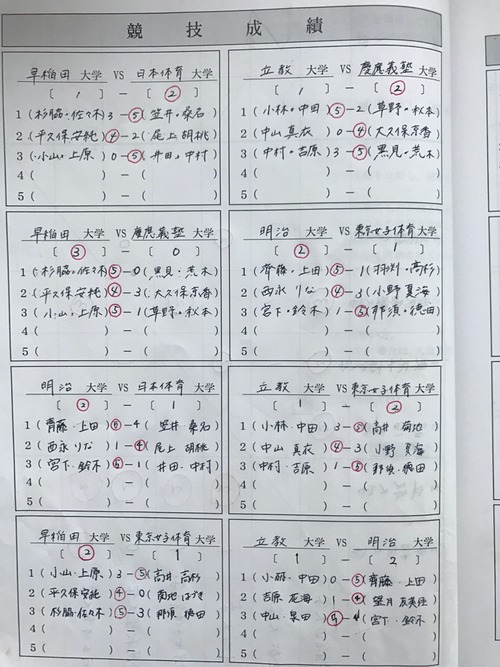 競技成績
早稲田 大学 VS 日本体育 大学
〔 1 〕 － 〔 ② 〕
1 ( 杉脇・佐々木 3 － ⑤ ( 笠井・桑名 )
2 ( 平久保安純 ④ － 2 ( 尾上 胡桃 )
3 ( 小山・上原 ) 0 － ⑤ ( 井田・中村 )
4 ( ) － ( )
5 ( ) － ( )
立教 大学 VS 慶應義塾 大学
〔 1 〕 － 〔 ② 〕
1 ( 小林・中田 ) ⑤ － 2 ( 草野・秋本 )
2 ( 中山 真衣 ) 0 － ④ ( 大久保京香 )
3 ( 中村・吉原 ) 3 － ⑤ ( 黒見・荒木 )
4 ( ) － ( )
5 ( ) － ( )
早稲田 大学 VS 慶應義塾 大学
〔 ③ 〕 － 〔 0 〕
1 ( 杉脇・佐々木 ⑤ － 0 ( 黒見・荒木 )
2 ( 平久保安純 ④ － 3 ( 大久保京香 )
3 ( 小山・上原 ) ⑤ － 1 ( 草野・秋本 )
4 ( ) － ( )
5 ( ) － ( )
明治 大学 VS 東京女子体育 大学
〔 ② 〕 － 〔 1 〕
1 ( 齊藤・上田 ) ⑤ － 1 ( ・高杉 )
2 ( 西永 りな ) ④ － 3 ( 小野 夏海 )
3 ( 宮下・鈴木 ) 1 － ⑤ ( 那須・徳田 )
4 ( ) － ( )
5 ( ) － ( )
明治 大学 VS 日本体育 大学
〔 ② 〕 － 〔 1 〕
1 ( 齊藤・上田 ) ⑤ － 4 ( 笠井 桑名 )
2 ( 西永 りな ) 1 － ④ ( 尾上 胡桃 )
3 ( 宮下・鈴木 ) ⑤ － 1 ( 井田・中村 )
4 ( ) － ( )
5 ( ) － ( )
立教 大学 VS 東京女子体育 大学
〔 1 〕 － 〔 ② 〕
1 ( 小林・中田 ) 3 － ⑤ ( 高井・菊地 )
2 ( 中山 真衣 ) ④ － 3 ( 小野 夏海 )
3 ( 中村・吉原 ) 1 － ⑤ ( 那須・徳田 )
4 ( ) － ( )
5 ( ) － ( )
早稲田 大学 VS 東京女子体育 大学
〔 ② 〕 － 〔 1 〕
1 ( 小山・上原 ) 3 － ⑤ ( 高井・高杉 )
2 ( 平久保安純 ) ④ － 0 ( 菊地 はづき )
3 ( 杉脇・佐々木 ) ⑤ － 3 ( 那須 徳田 )
4 ( ) － ( )
5 ( ) － ( )
立教 大学 VS 明治 大学
〔 1 〕 － 〔 2 〕
1 ( 小林・中田 ) 0 － ⑤ ( 齊藤・上田 )
2 ( 吉原 花海 ) 1 － ④ ( 望月 友美 )
3 ( 中山・柴田 ) ⑤ － 4 ( 宮下・鈴木 )
4 ( ) － ( )
5 ( ) － ( )